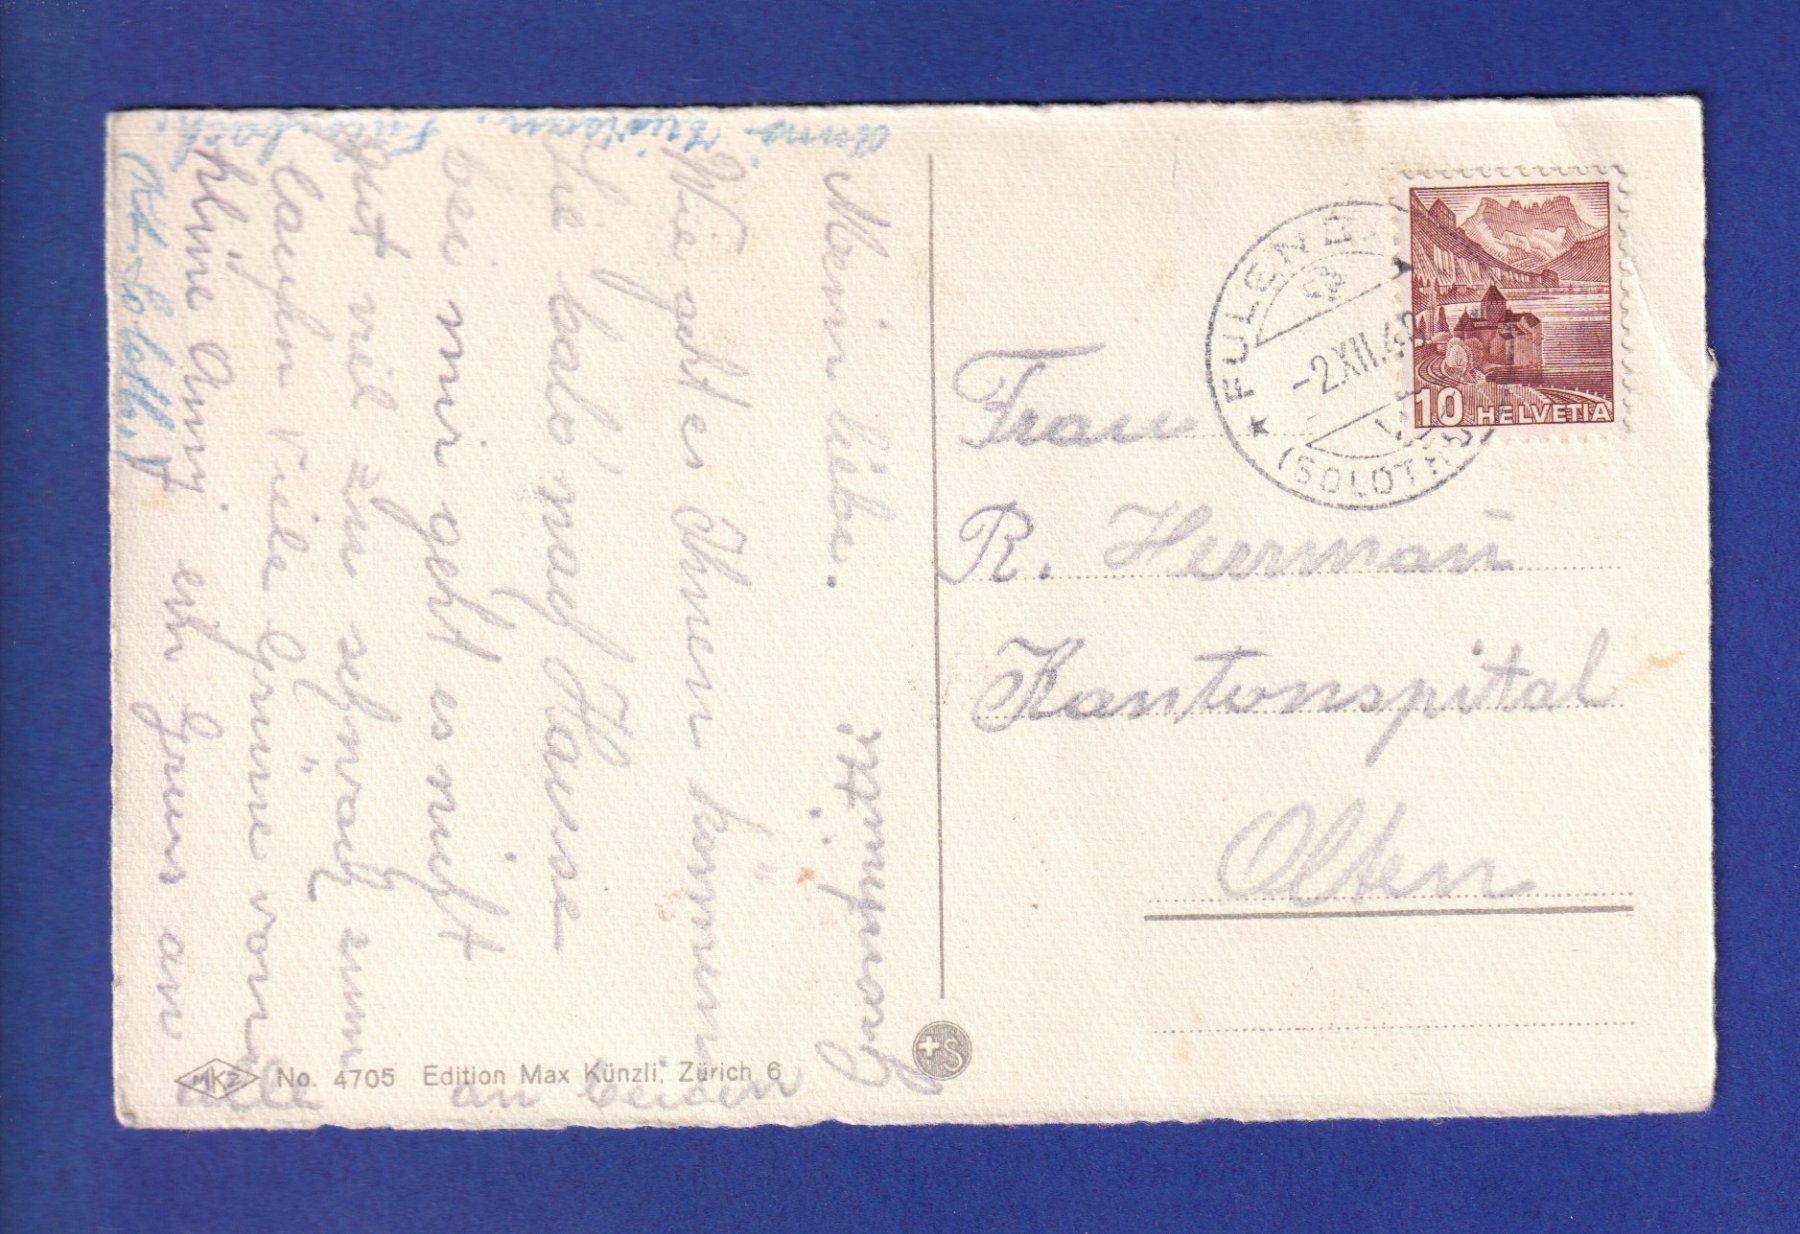 Mein liebe.
Wie geht es Ihnen können
Sie bald nach Hause
bei mir geht es nicht
gut viel zu schwach zum
laufen Viele Grüsse von
kleine Anny ein Gruss an
alle an beiden
Anna
Kt. Soloth.
Frau
R. Herrman̄
Kantonspital
Olten
FULENB
-2.XII.4
(SOLOTHU
10 HELVETIA
S
MKZ No. 4705 Edition Max Künzli, Zürich 6